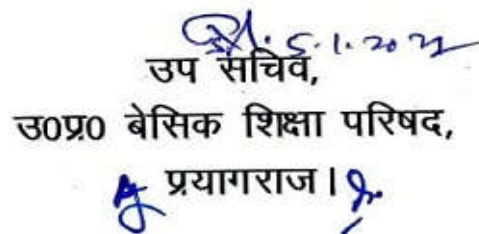 5.1.202
उप सचिव,
उ0प्र0 बेसिक शिक्षा परिषद,
प्रयागराज।